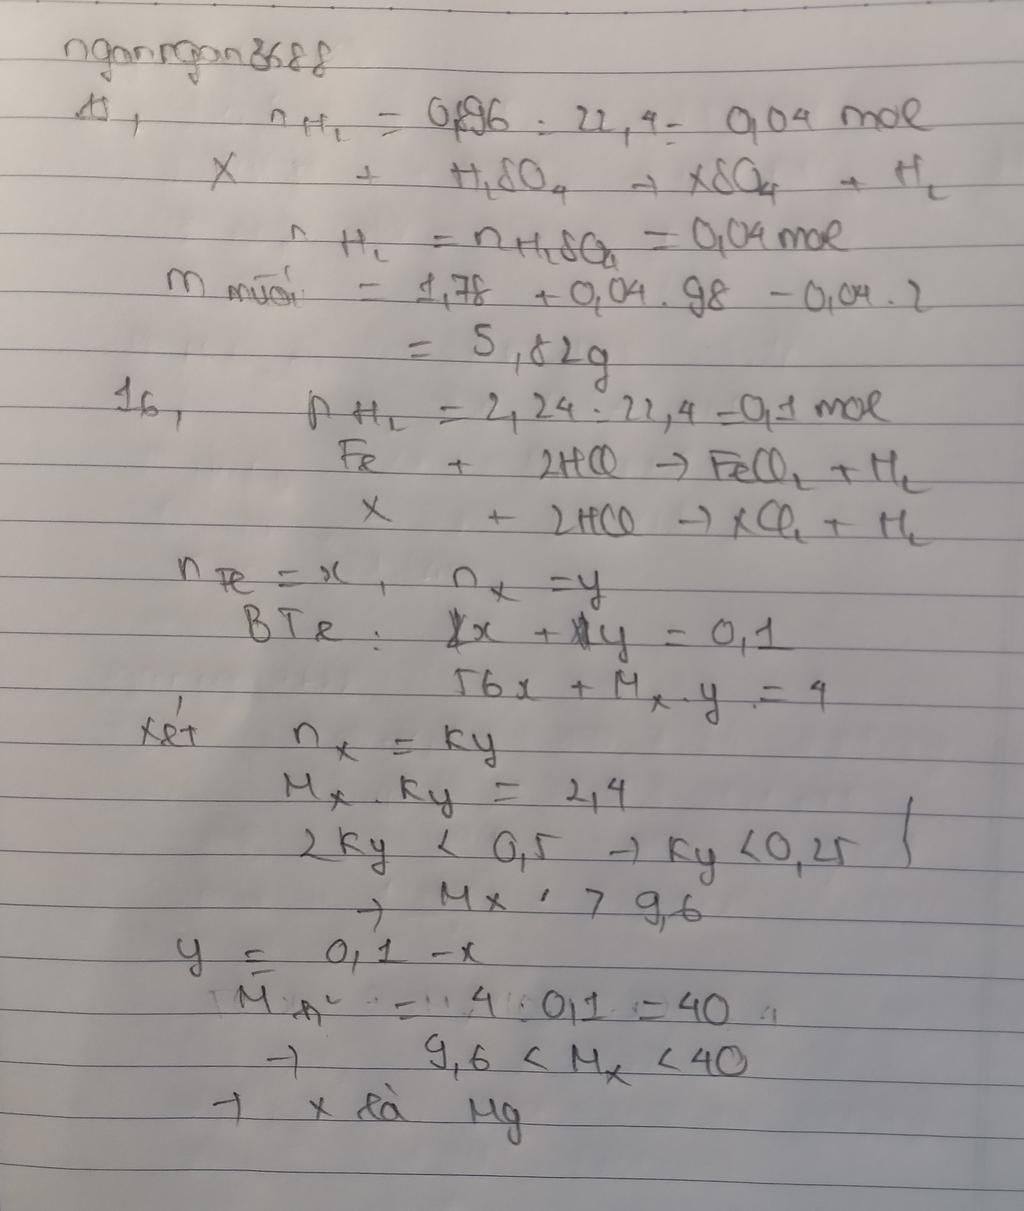 ngannngan3688
15, nH₂ = 0,896 : 22,4 = 0,04 mol
X + H₂SO₄ → XSO₄ + H₂
nH₂ = nH₂SO₄ = 0,04 mol
m muối = 1,78 + 0,04 . 98 - 0,04 . 2
= 5,82g
16, nH₂ = 2,24 : 22,4 = 0,1 mol
Fe + 2HCl → FeCl₂ + H₂
X + 2HCl → XCl₂ + H₂
nFe = x, nX = y
BTe : x + y = 0,1
56x + Mx . y = 4
xét nX = ky
Mx . ky = 2,4
2ky < 0,5 → ky < 0,25
→ Mx > 9,6
y = 0,1 - x
M = 4 : 0,1 = 40
→ 9,6 < Mx < 40
→ X là Mg